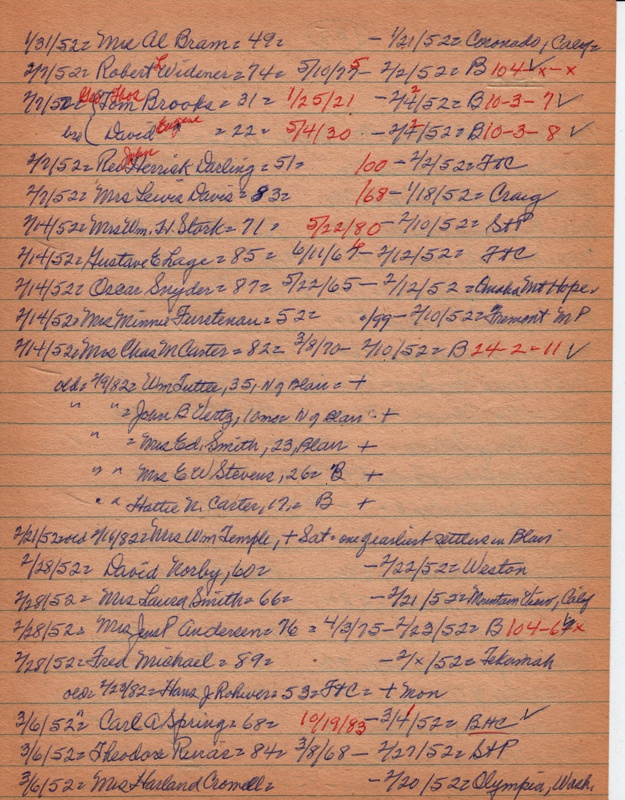 1/31/52 = Mrs Al Bram = 49 = - 1/21/52 = Coronado, Calif =
2/7/52 = Robert L Widener = 74 = 5/10/77 5 - 2/2/52 = B 104 - x - x
2/7/52 = Geo Thos Tom Brooks = 31 = 1/25/21 - 2/2/52 = B 10-3-7 ✓
bro ( David Eugene = 22 = 5/4/30 - 2/2/52 = B 10-3-8 ✓
2/7/52 = Rev John Herrick Darling = 51 = /00 - 2/2/52 = Ft C
2/7/52 = Mrs Lewis Davis = 83 = /68 - 1/18/52 = Craig
2/14/52 = Mrs Wm. H. Stork = 71 = 5/22/80 - 2/10/52 = StP
2/14/52 = Gustave E Lage = 85 = 6/11/67 - 2/12/52 = Ft C
2/14/52 = Oscar Snyder = 87 = 5/22/65 - 2/12/52 = Omaha Mt Hope.
2/14/52 = Mrs Minnie Furstenau = 52 = /99 - 2/10/52 = Fremont M P
2/14/52 = Mrs Chas M Carter = 82 = 3/8/70 - 2/10/52 = B 24-2-11 ✓
old = 2/9/82 = Wm Tutter, 35, N of Blair = +
" " = Joan B Wertz, 10 mos N of Blair +
" = Mrs Ed. Smith, 23, Blair +
" " Mrs E W Stevens, 26 = B +
" " Hattie N. Carter, 17, = B +
2/21/52 = old 2/16/82 = Mrs Wm Temple, + Sat = one of earliest settlers in Blair
2/28/52 = David Norby, 60 = - 2/22/52 = Weston
2/28/52 = Mrs Laura Smith = 66 = - 2/21/52 = Mountain View, Calif
2/28/52 = Mrs Jens P Andersen = 76 = 4/3/75 - 2/23/52 = B 104-6-x
2/28/52 = Fred Michael = 89 = - 2/x/52 = Tekamah
old = 2/23/82 = Hans J Rohwer = 53 = Ft C = + Mon
3/6/52 = Carl A Spring = 68 = 10/19/83 - 3/1/52 = BHC ✓
3/6/52 = Theodore Rurás = 84 = 3/8/68 - 2/27/52 = StP
3/6/52 = Mrs Harland Cromell = - 2/20/52 = Olympia, Wash.